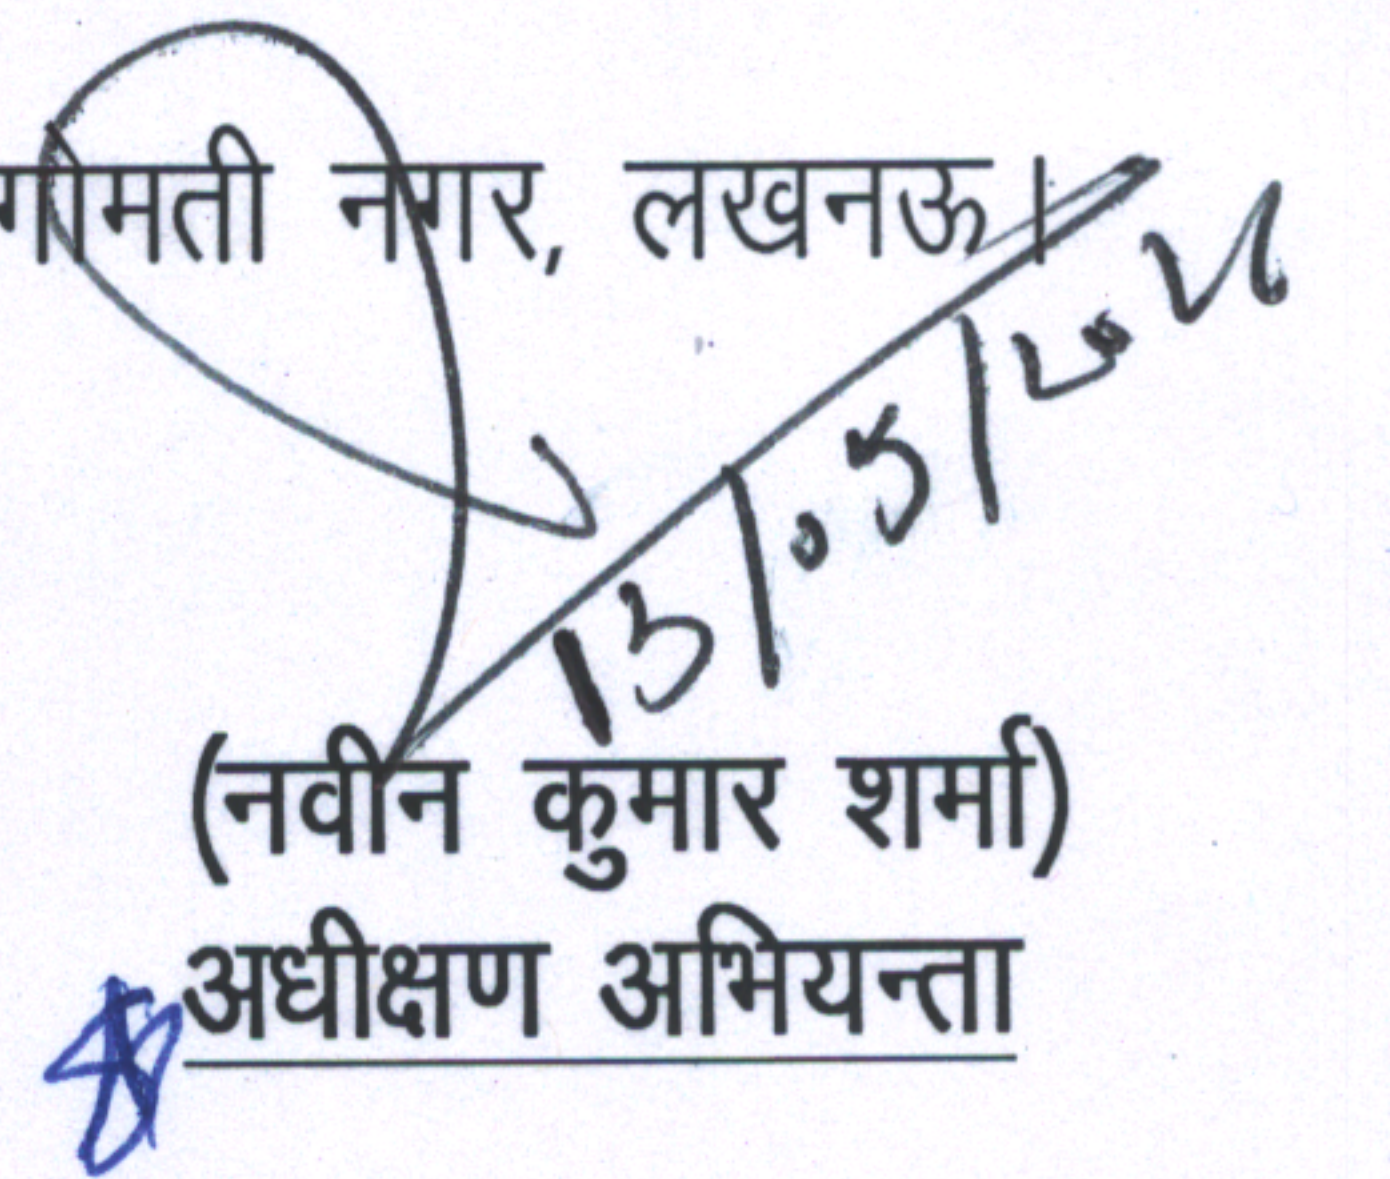 गोमती नगर, लखनऊ।
13/05/2024
(नवीन कुमार शर्मा)
अधीक्षण अभियन्ता